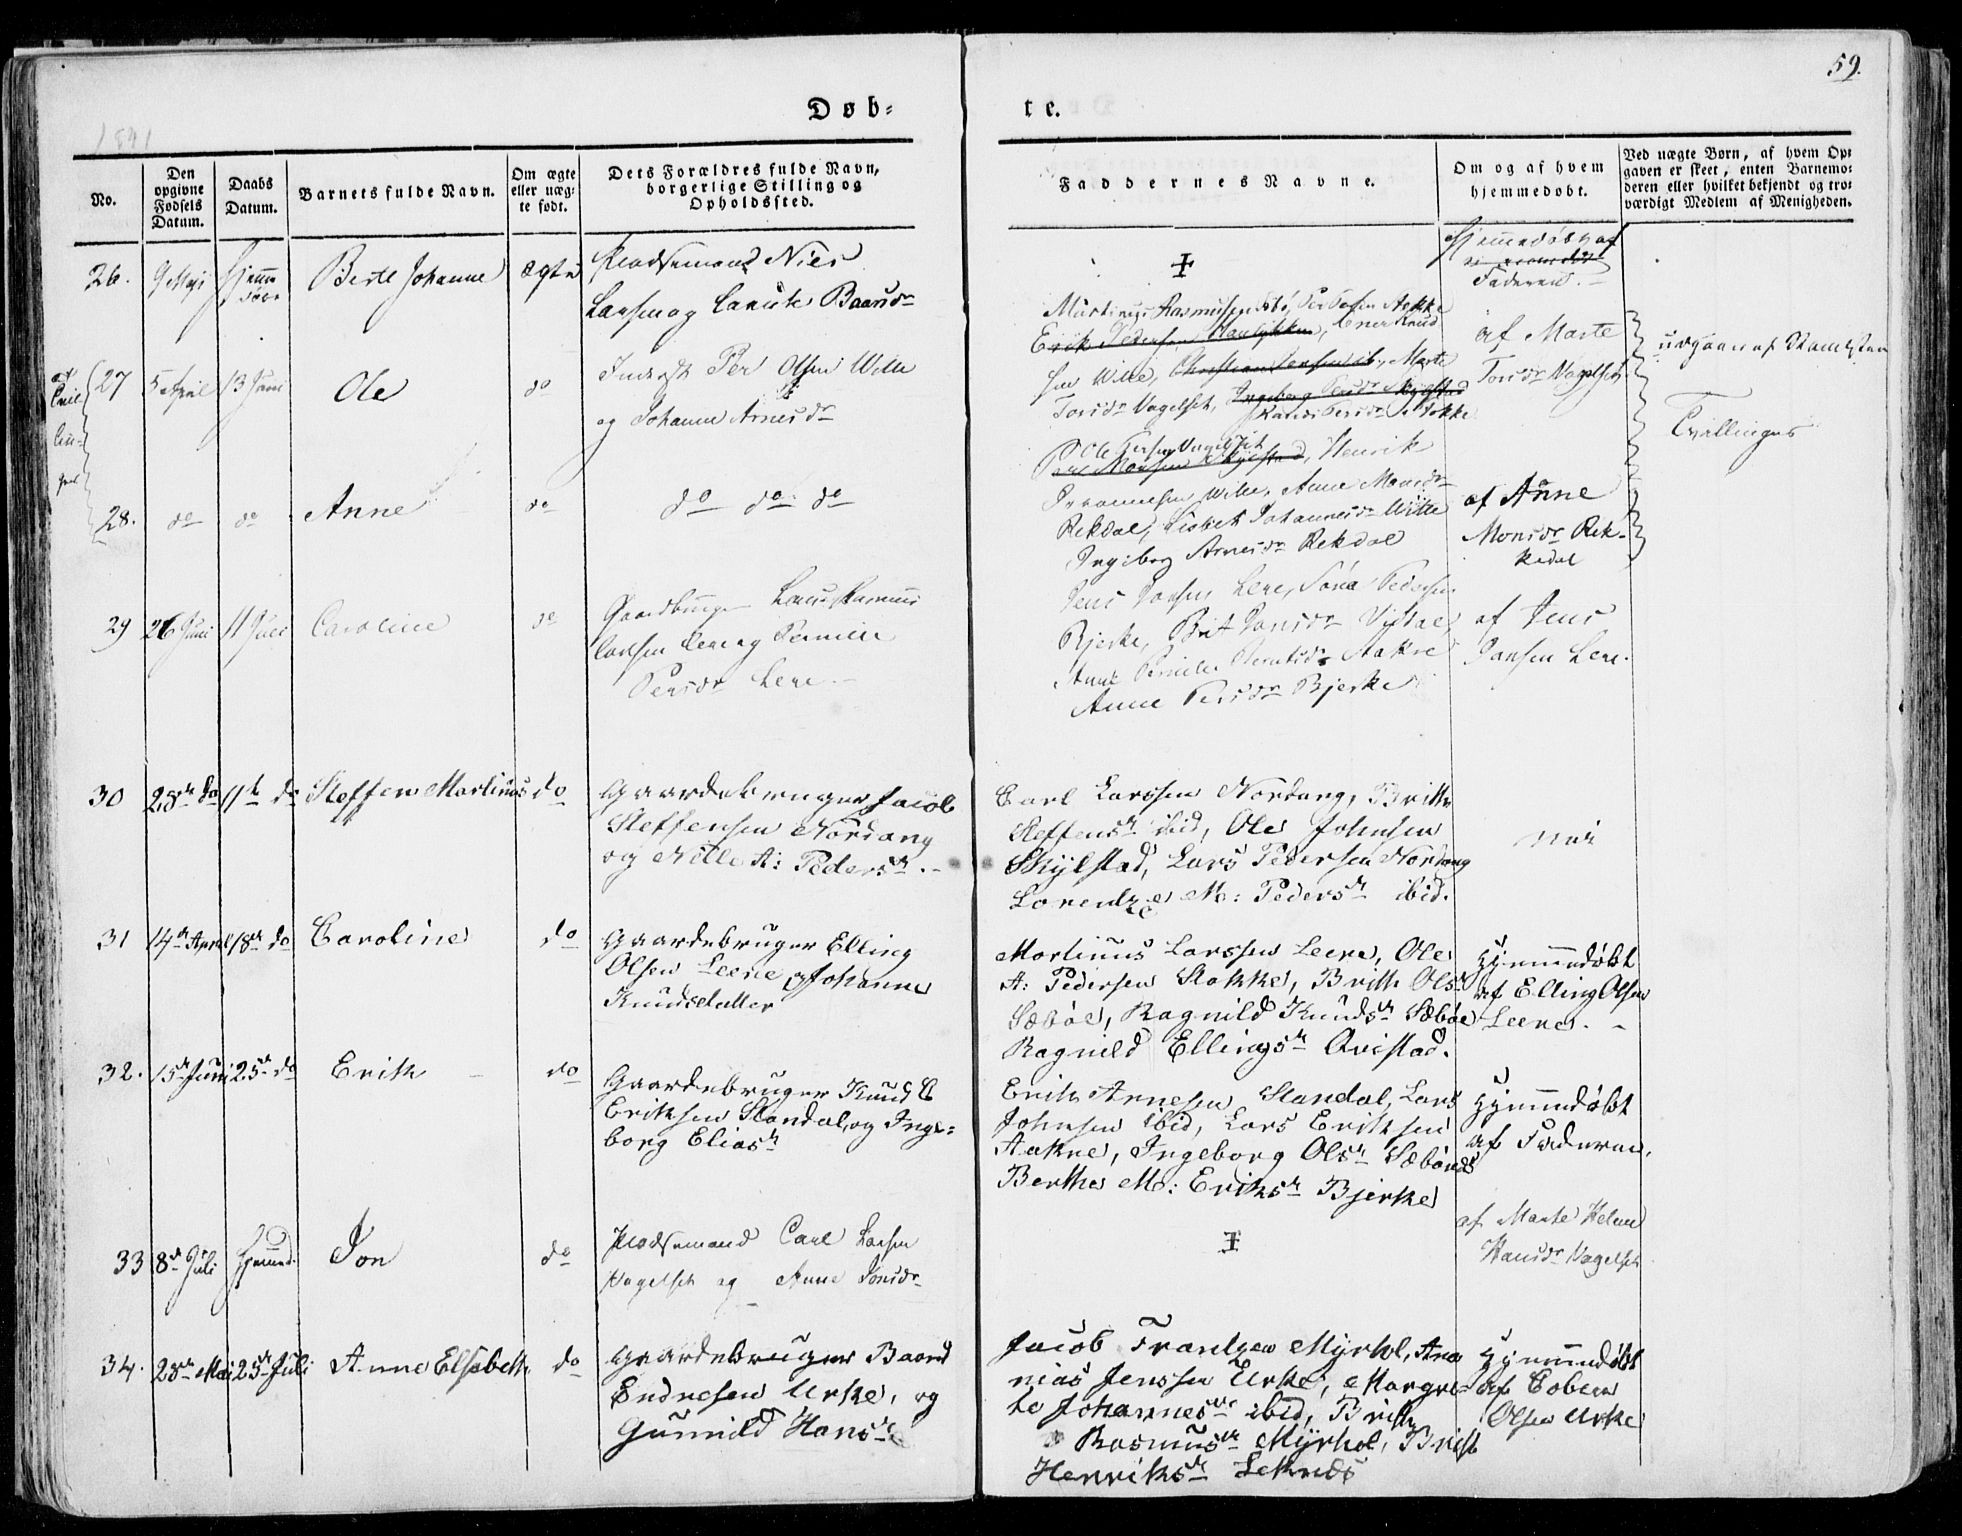 59.
Døb-
te.
1841
No.
Den opgivne Fødsels Datum.
Daabs Datum.
Barnets fulde Navn.
Om ægte eller uægte født.
Dets Forældres fulde Navn, borgerlige Stilling og Opholdssted.
Faddernes Navne.
Om og af hvem hjemmedøbt.
Ved uægte Børn, af hvem Opgaven er skeet, enten Barnemoderen eller hvilket bekjendt og troværdigt Medlem af Menigheden.
26.
9 Maji
Hjemmedøbt
Berte Johanne
ægte
Pladsemand Niels
Larsen og
‡
Hjemmedøbt af
Faderen.
27
5 April
13 Juni
Ole
do
Inderst Per Olsen Wille
og Johanne Arnesdr
Martinus Rasmussen
Erik Pedersen
sen Wille, Marte
Torsdr Vagelset,
af Marte
Torsdr Vagelset
Tvillinger
28.
do
do
Anne
do
do do do
Ole Vagelset
Henrik
Wille, Anne Monsdr
Rekdal, Lisbet Johannesdr Wille
Ingeborg Arnesdr Rekdal
af Anne
Monsdr Rek-
kedal
29
26 Juni
11 Juli
Caroline
do
Gaardbruger Rasmus
Larsen Lene og Pernille
Persdr Lene
Jens Jonsen Lene,
Bjerke, Brit Jonsdr
Aakre
Anne Persdr Bjerke
af Jens
Jonsen Lene.
30
25de do
11te do
Steffen Martinus
do
Gaardebruger Jacob
Steffensen Nordang
og Nille A: Pedersdr.
Carl Larssen Nordang, Brithe
Steffensdr ibid, Ole Johnsen
Skylstad, Lars Pedersen Nordang
Lorentze M: Pedersdr ibid.
nei
31
14de April
18de do
Caroline
do
Gaardebruger Elling
Olsen Leene og Johanne
Knudsdatter
Martinus Larssen Leene, Ole
A: Pedersen Stokke, Brithe Olsdr
Sæbøe, Ragnild Knudsdr Sæbøe
Ragnild Ellingsdr Qvistad.
Hjemmedøbt
af Elling Olsen
Leene.
32.
15de Juni
25de do
Erik
do
Gaardebruger Knud E
Eriksen Standal, og Inge-
borg Eliasdr
Erik Arnesen Standal, Lars
Johnsen ibid, Lars Eriksen
Aakne, Ingeborg Olsdr Sæbønes
Berthe M: Eriksdr Bjerke
Hjemmedøbt
af Faderen.
33
8de Juli
Hjemmed.
Jon
do
Pladsemand Carl Larsen
Vagelset og Anne Jonsdr
‡
af Marte Helene
Hansdr Vagelset
34.
25de Mai
25de Juli
Anne Elsebeth
do
Gaardebruger Baard
Endresen Urke, og
Gunnild Hansdr
Jacob Frantzen Myrhol, Ana
nias Jenssen Urke, Margre-
te Johannesdr ibid, Brithe
Rasmusdr Myrhol, Brithe
Henriksdr Leknes
Hjemmedøbt
af Eobern
Olsen Urke